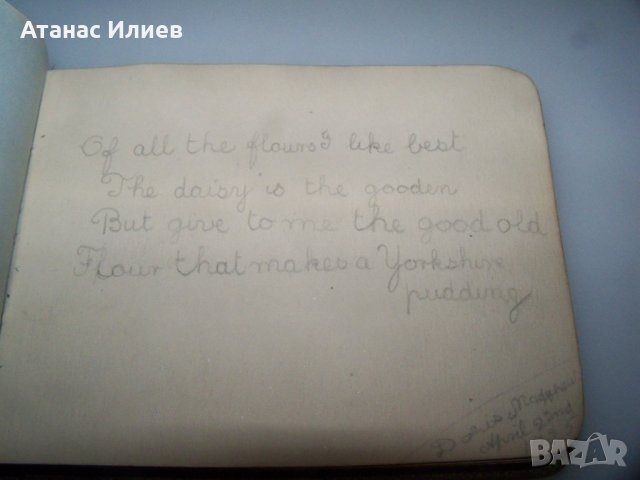 Атанас Илиев
Of all the flours I like best
The daisy is the gooden
But give to me the good old
Flour that makes a Yorkshire
pudding
Doris
April 2nd
BAZAR